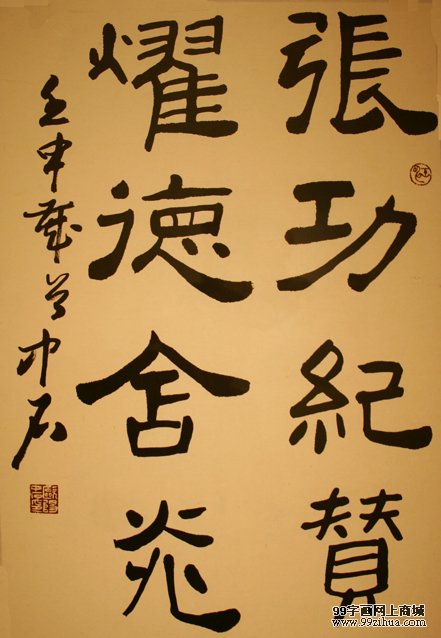 張功紀賛
燿德舍灮
壬申歲首中石
99字画网上商城
www.99zihua.com